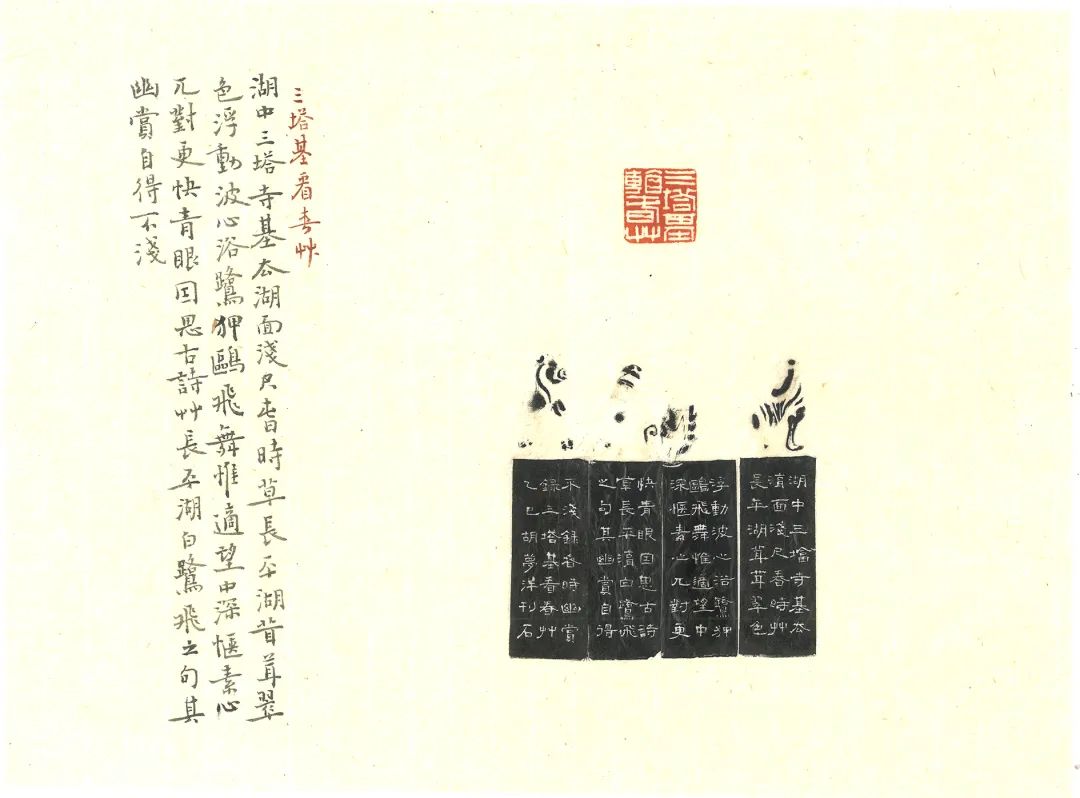 三塔基看春艸
湖中三塔寺基厺湖面淺尺春時草長平湖茸茸翠
色浮動波心浴鷺狎鷗飛舞惟適望中深愜素心
兀對更快青眼因思古詩艸長平湖白鷺飛之句其
幽賞自得不淺
三塔基
看春艸
湖中三塔寺基厺
湖面淺尺春時艸
長平湖茸茸翠色
浮動波心浴鷺狎
鷗飛舞惟適望中
深愜素心兀對更
快青眼因思古詩
草長平湖白鷺飛
之句其幽賞自得
不淺錄春時幽賞
錄三塔基看春艸
乙巳胡夢洋刊石